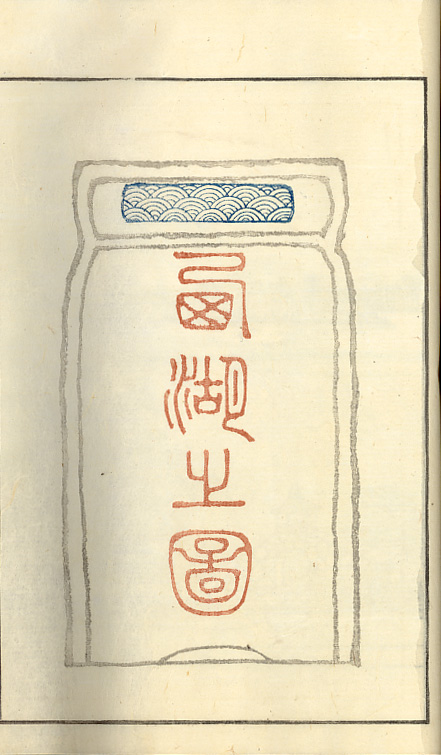 西湖之圖